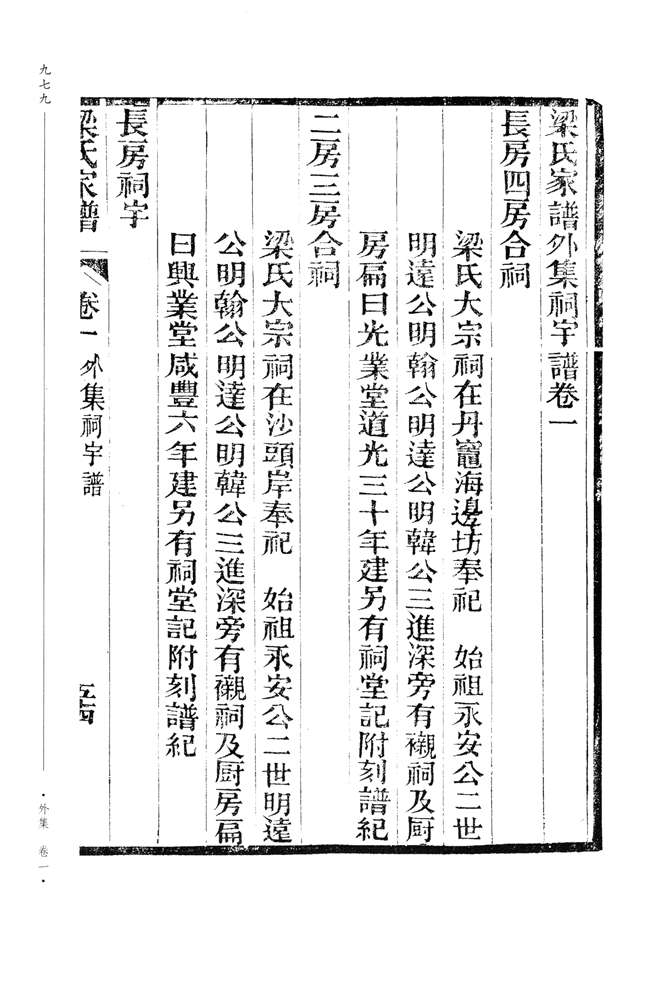 梁氏家譜外集祠宇譜卷一
長房四房合祠
梁氏大宗祠在丹竈海邊坊奉祀　始祖永安公二世
明遠公明翰公明達公明韓公三進深旁有襯祠及厨
房扁曰光業堂道光三十年建另有祠堂記附刻譜紀
二房三房合祠
梁氏大宗祠在沙頭岸奉祀　始祖永安公二世明遠
公明翰公明達公明韓公三進深旁有襯祠及厨房扁
曰興業堂咸豐六年建另有祠堂記附刻譜紀
長房祠宇
梁氏家譜　卷一　外集祠宇譜　五四
九七九
·外集　卷一·